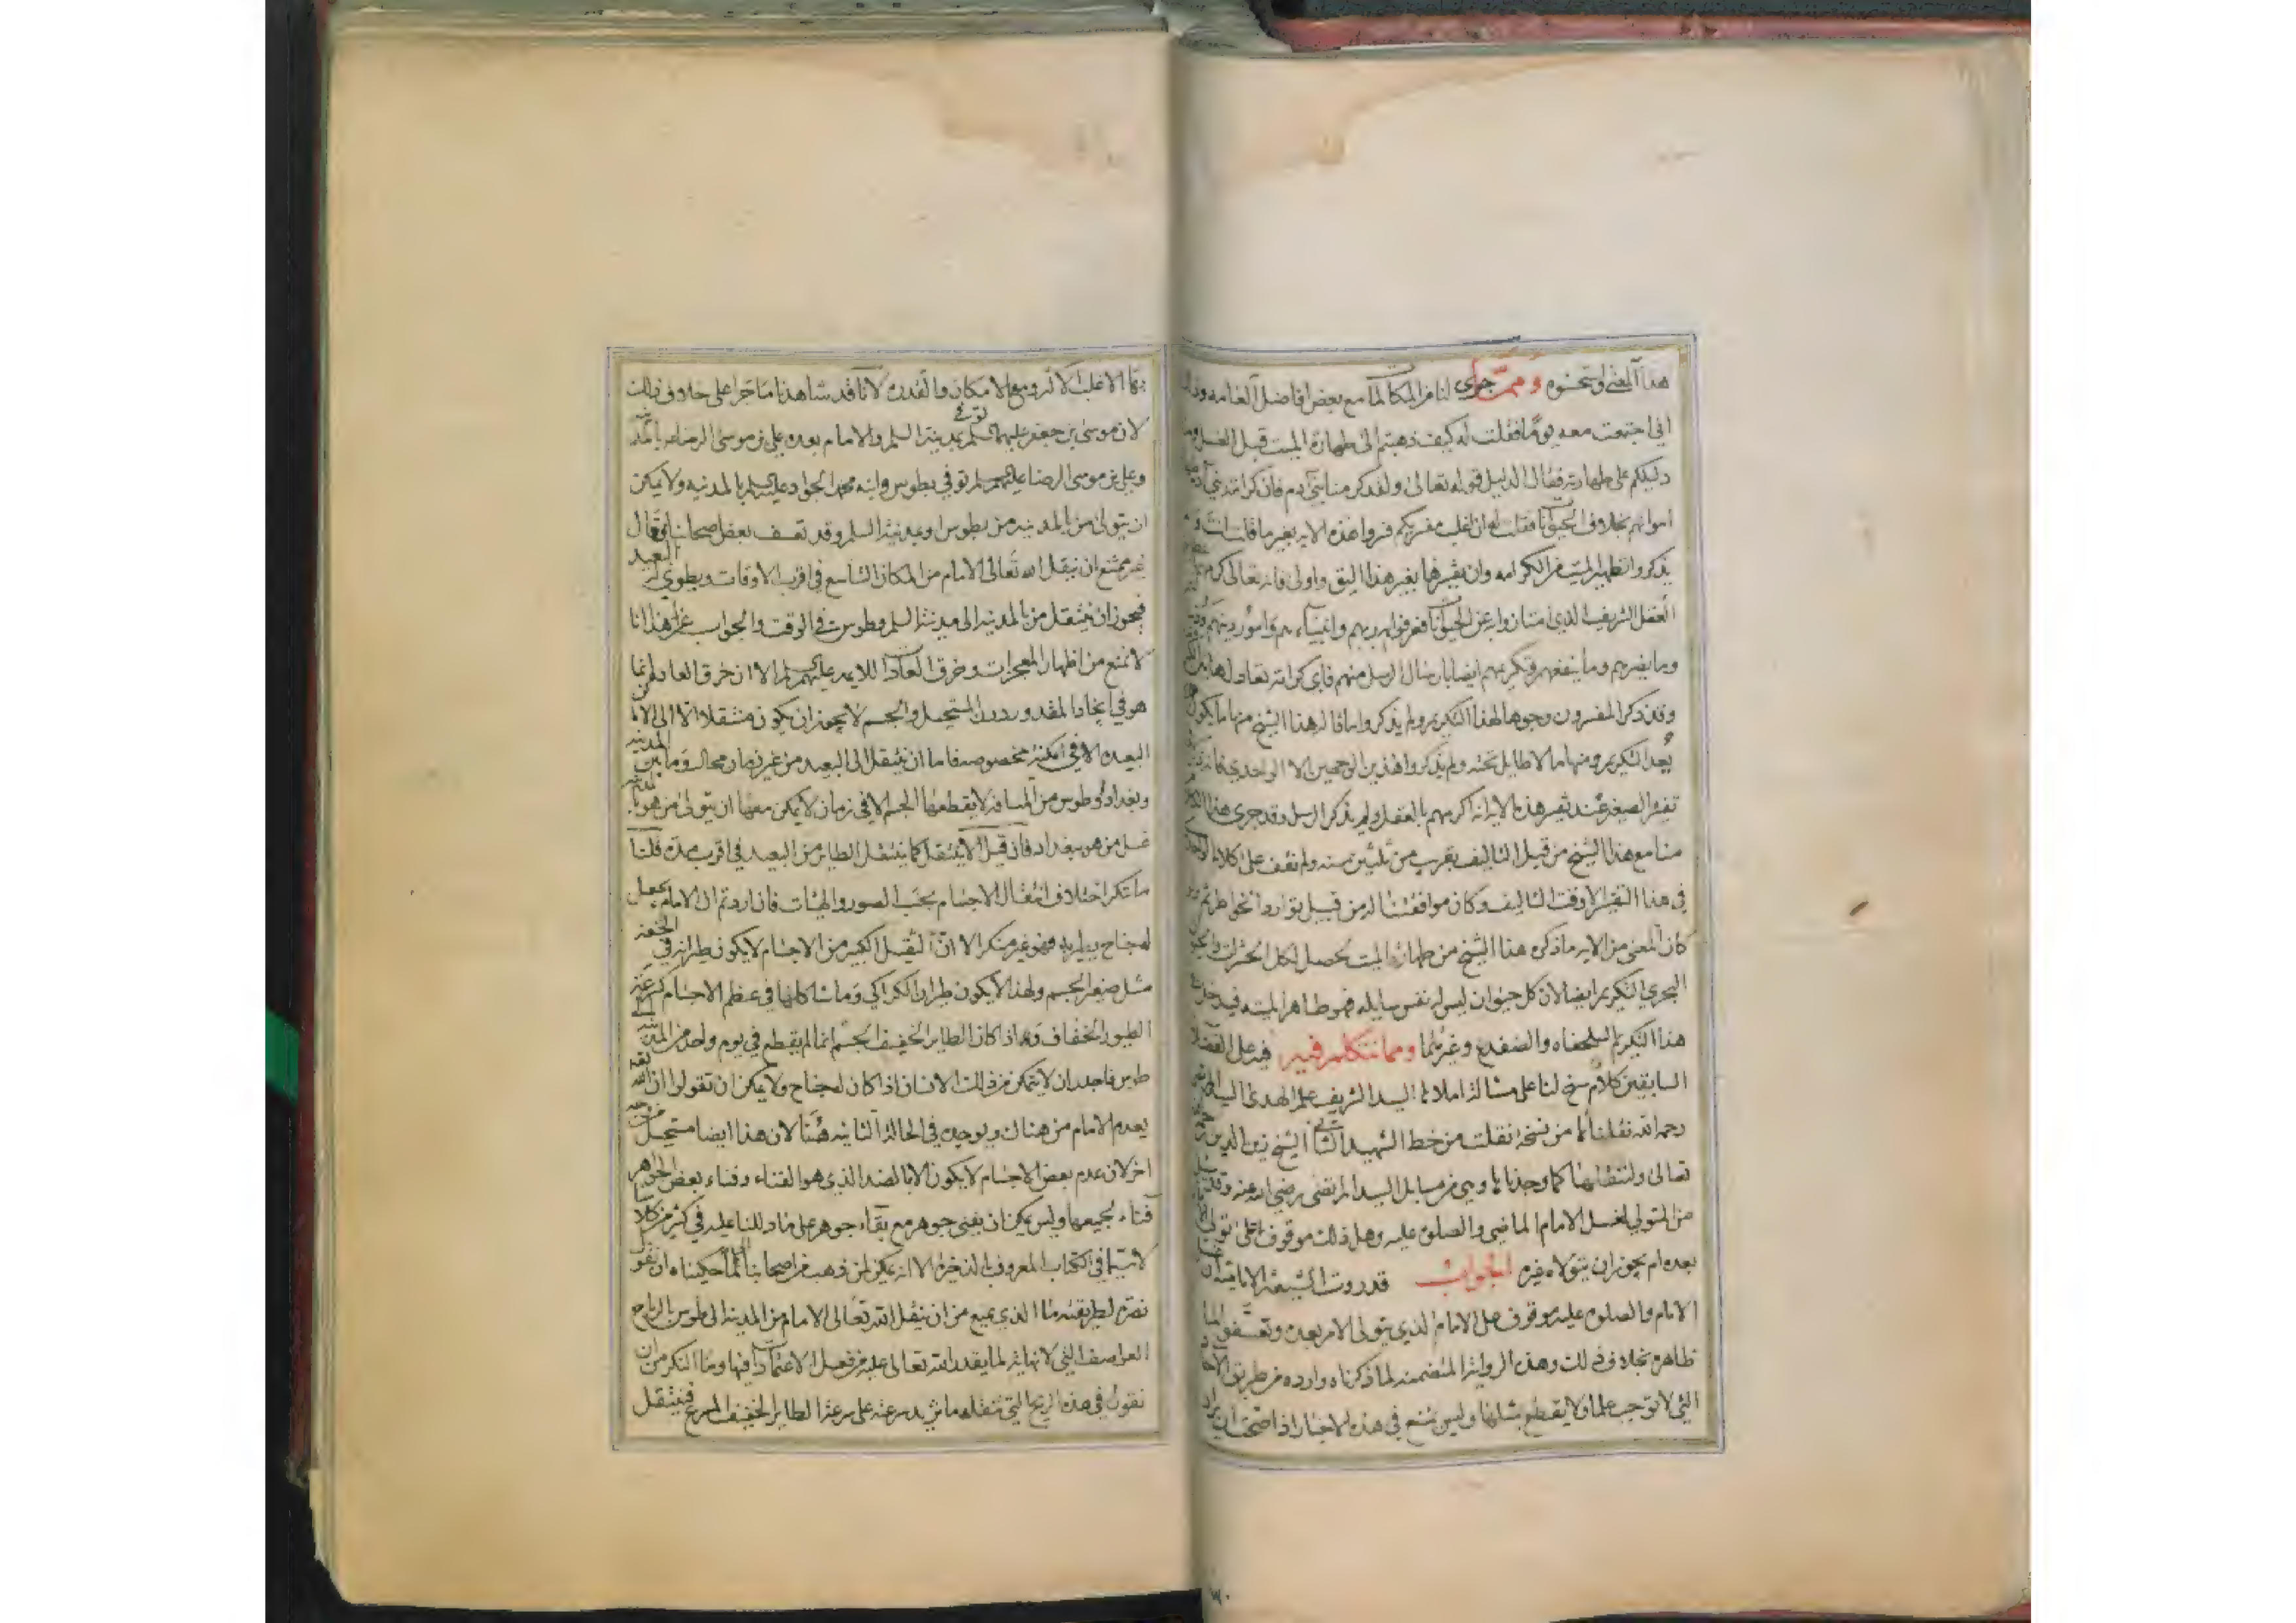 هذا المعنى واستحسنوه ومما جرى لنا من المكالمات مع بعض افاضل العامه وذلك
انى اجتمعت معه يوما فقلت له كيف ذهبتم الى طهارة الميت قبل الغسل وما
دليلكم على طهارته فقال الدليل قوله تعالى ولقد كرمنا بنى آدم فان كرامة بنى آدم
امواتهم بخلاف الحيوانات فقلت له ان اغلب مفسريكم فسروا هذه الايه بغير ما قلت انت
يذكروا تطهير الميت من الكرامه وان تفسيرها بغير هذا اليق واولى فانه تعالى كرمهم
العقل الشريف الذى امتازوا به عن الحيوانات فعرفوا به ربهم وانبيائهم وامور دينهم
وما يضرهم وما ينفعهم وتكريمهم ايضا بارسال الرسل منهم فاى كرامة تعادلها
وقد ذكر المفسرون وجوها لهذا التكريم ولم يذكروا ما قاله هذا الشيخ منها ما يكون
بعد التكريم ومنها ما لا طايل تحته ولم يذكروا هذين الوجهين الا الواحدى فانه ذكر
تفسير الصغير عند تفسير هذه الاية انه اكرمهم بالعقل ولم يذكر الرسل وقد جرى هذا الكلام
منا مع هذا الشيخ من قبل التاليف بقرب من ثلثين سنه ولم نقف على كلام الواحدى
فى هذا التفسير الا وقت التاليف وكان موافقتنا له من قبيل توارد الخواطر ثم
كان المعنى من الايه ما ذكره هذا الشيخ من طهارة الميت يحصل لكل الحشرات والحيوان
البحرى التكريم ايضا لان كل حيوان ليس له نفس سايله فهو طاهر الميته فيدخل
هذا التكريم السلحفاه والضفدع وغيرهما ومما نتكلم فيه فى غسل الفضلاء
السابقين كلام سنح لنا على مسالة املاها السيد الشريف علم الهدى السيد المرتضى
رحمه الله نقلناها من نسخة نقلت من خط الشهيد الثانى الشيخ زين الدين
تعالى ولننقلها كما وجدناها وهى من مسايل السيد المرتضى رضى الله عنه وقد
من المتولى لغسل الامام الماضى والصلوة عليه وهل ذلك موقوف على تولى
بعده ام يجوز ان يتولاه غيره الجواب قد روت الشيعة الاماميه ان
الامام والصلوة عليه موقوف على الامام الذى يتولى الامر بعده وتعسفوا لما
ظاهره بخلاف ذلك وهذه الرواية المتضمنه لما ذكرناه وارده من طريق الاحاد
التى لا توجب علما ولا يقطع بمثلها وليس يمتنع فى هذه الاخبار اذا صحت ان يراد
بها الاغلب الاكثر ومع الامكان والقدره لانا قد شاهدنا ما جرا على خلاف ذلك
لان موسى بن جعفر عليهما السلم توفى بمدينة السلم والامام بعده على بن موسى الرضا ع بالمدينه
وعلى بن موسى الرضا عليهم السلم توفى بطوس وابنه محمد الجواد عليه السلم بالمدينه ولا يمكن
ان يتولى من بالمدينه من بطوس او بمدينة السلم وقد تعسف بعض اصحابنا فقال
غير ممتنع ان ينقل الله تعالى الامام من المكان الشاسع فى اقرب الاوقات ويطوى له البعيد
فيجوز ان ينتقل من بالمدينه الى مدينة السلم وطوس فى الوقت والجواب عن هذا انا
لا نمنع من اظهار المعجزات وخرق العادات للايمه عليهم السلم الا ان خرق العاده انما
هو فى ايجاد المقدور دون المستحيل والجسم لا يجوز ان يكون منتقلا الى الاماكن
البعيده الا فى ازمنه مخصوصه فاما ان ينتقل الى البعيد من غير زمان محال وما بين المدينه
وبغداد وطوس من المسافة لا يقطعها الجسم الا فى زمان لا يمكن معها ان يتولى من هو بالمدينه
غسل من هو ببغداد فان قيل الا ينتقل كما ينتقل الطائر من البعيد فى اقرب مدة قلنا
ما ننكر اختلاف انتقال الاجسام بحسب الصور والهيئات فان اردتم ان الامام يجعل
له جناح يطير به فهو غير منكر الا ان الثقيل الكبير من الاجسام لا يكون طيرانه فى الخفه
مثل صغير الجسم ولهذا لا يكون طيران الكراكى وما شاكلها فى عظم الاجسام كسرعة
الطيور الخفاف وهذا اذا كان الطاير الخفيف الجسم انما لم يقطع فى يوم واحد من المدينه الى
طوس فاجدر ان لا يتمكن من ذلك الانسان اذا كان له جناح ولا يمكن ان تقولوا ان الله
يعدم الامام من هناك ويوجده فى الحالة الثانيه هنا لان هذا ايضا مستحيل من وجه
اخر لان عدم بعض الاجسام لا يكون الا بالضد الذى هو الفناء وفناء بعض الجواهر
فناء لجميعها وليس يمكن ان يفنى جوهر مع بقاء جوهر على ما دللنا عليه فى كثير من كلامنا
لا سيما فى الكتاب المعروف بالذخيرة الا انه يمكن لمن ذهب من اصحابنا الى ما حكيناه ان يقول
نصرة لطريقته ما الذى يمنع من ان ينقل الله تعالى الامام من المدينة الى طوس بالرياح
العواصف التى لا نهاية لما يقدر الله تعالى عليه من فعل الاعتمادات فيها وما المنكر من ان
نقول فى هذه الريح التى تنقله ما تزيد سرعته على سرعة الطاير الخفيف المسرع فينتقل